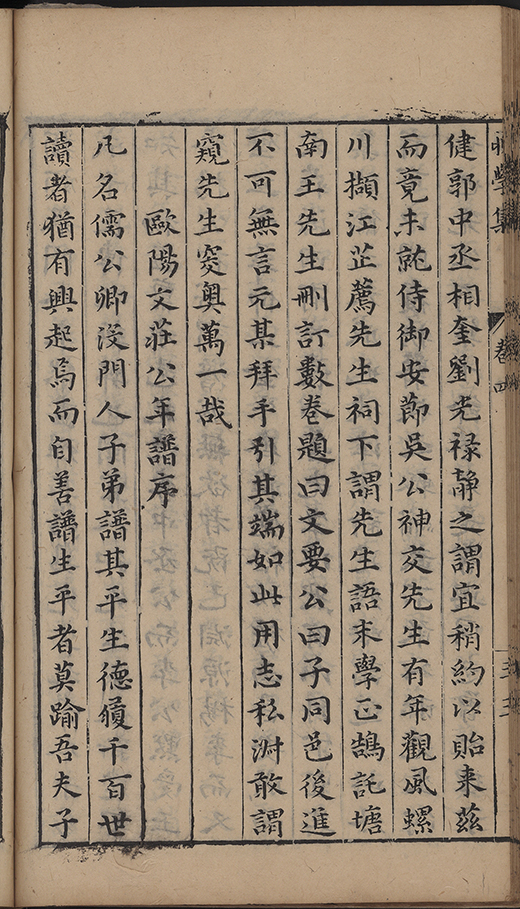 集
卷四
健郭中丞相奎劉光禄靜之謂宜稍約以貽來茲
而竟未就侍御安節吳公神交先生有年觀風螺
川擷江芷薦先生祠下謂先生語末學正鵠託塘
南王先生刪訂數卷題曰文要公曰子同邑後進
不可無言元某拜手引其端如此用志私淑敢謂
窺先生窔奧萬一哉
歐陽文莊公年譜序
凡名儒公卿沒門人子弟譜其平生德履千百世
讀者猶有興起焉而自善譜生平者莫踰吾夫子